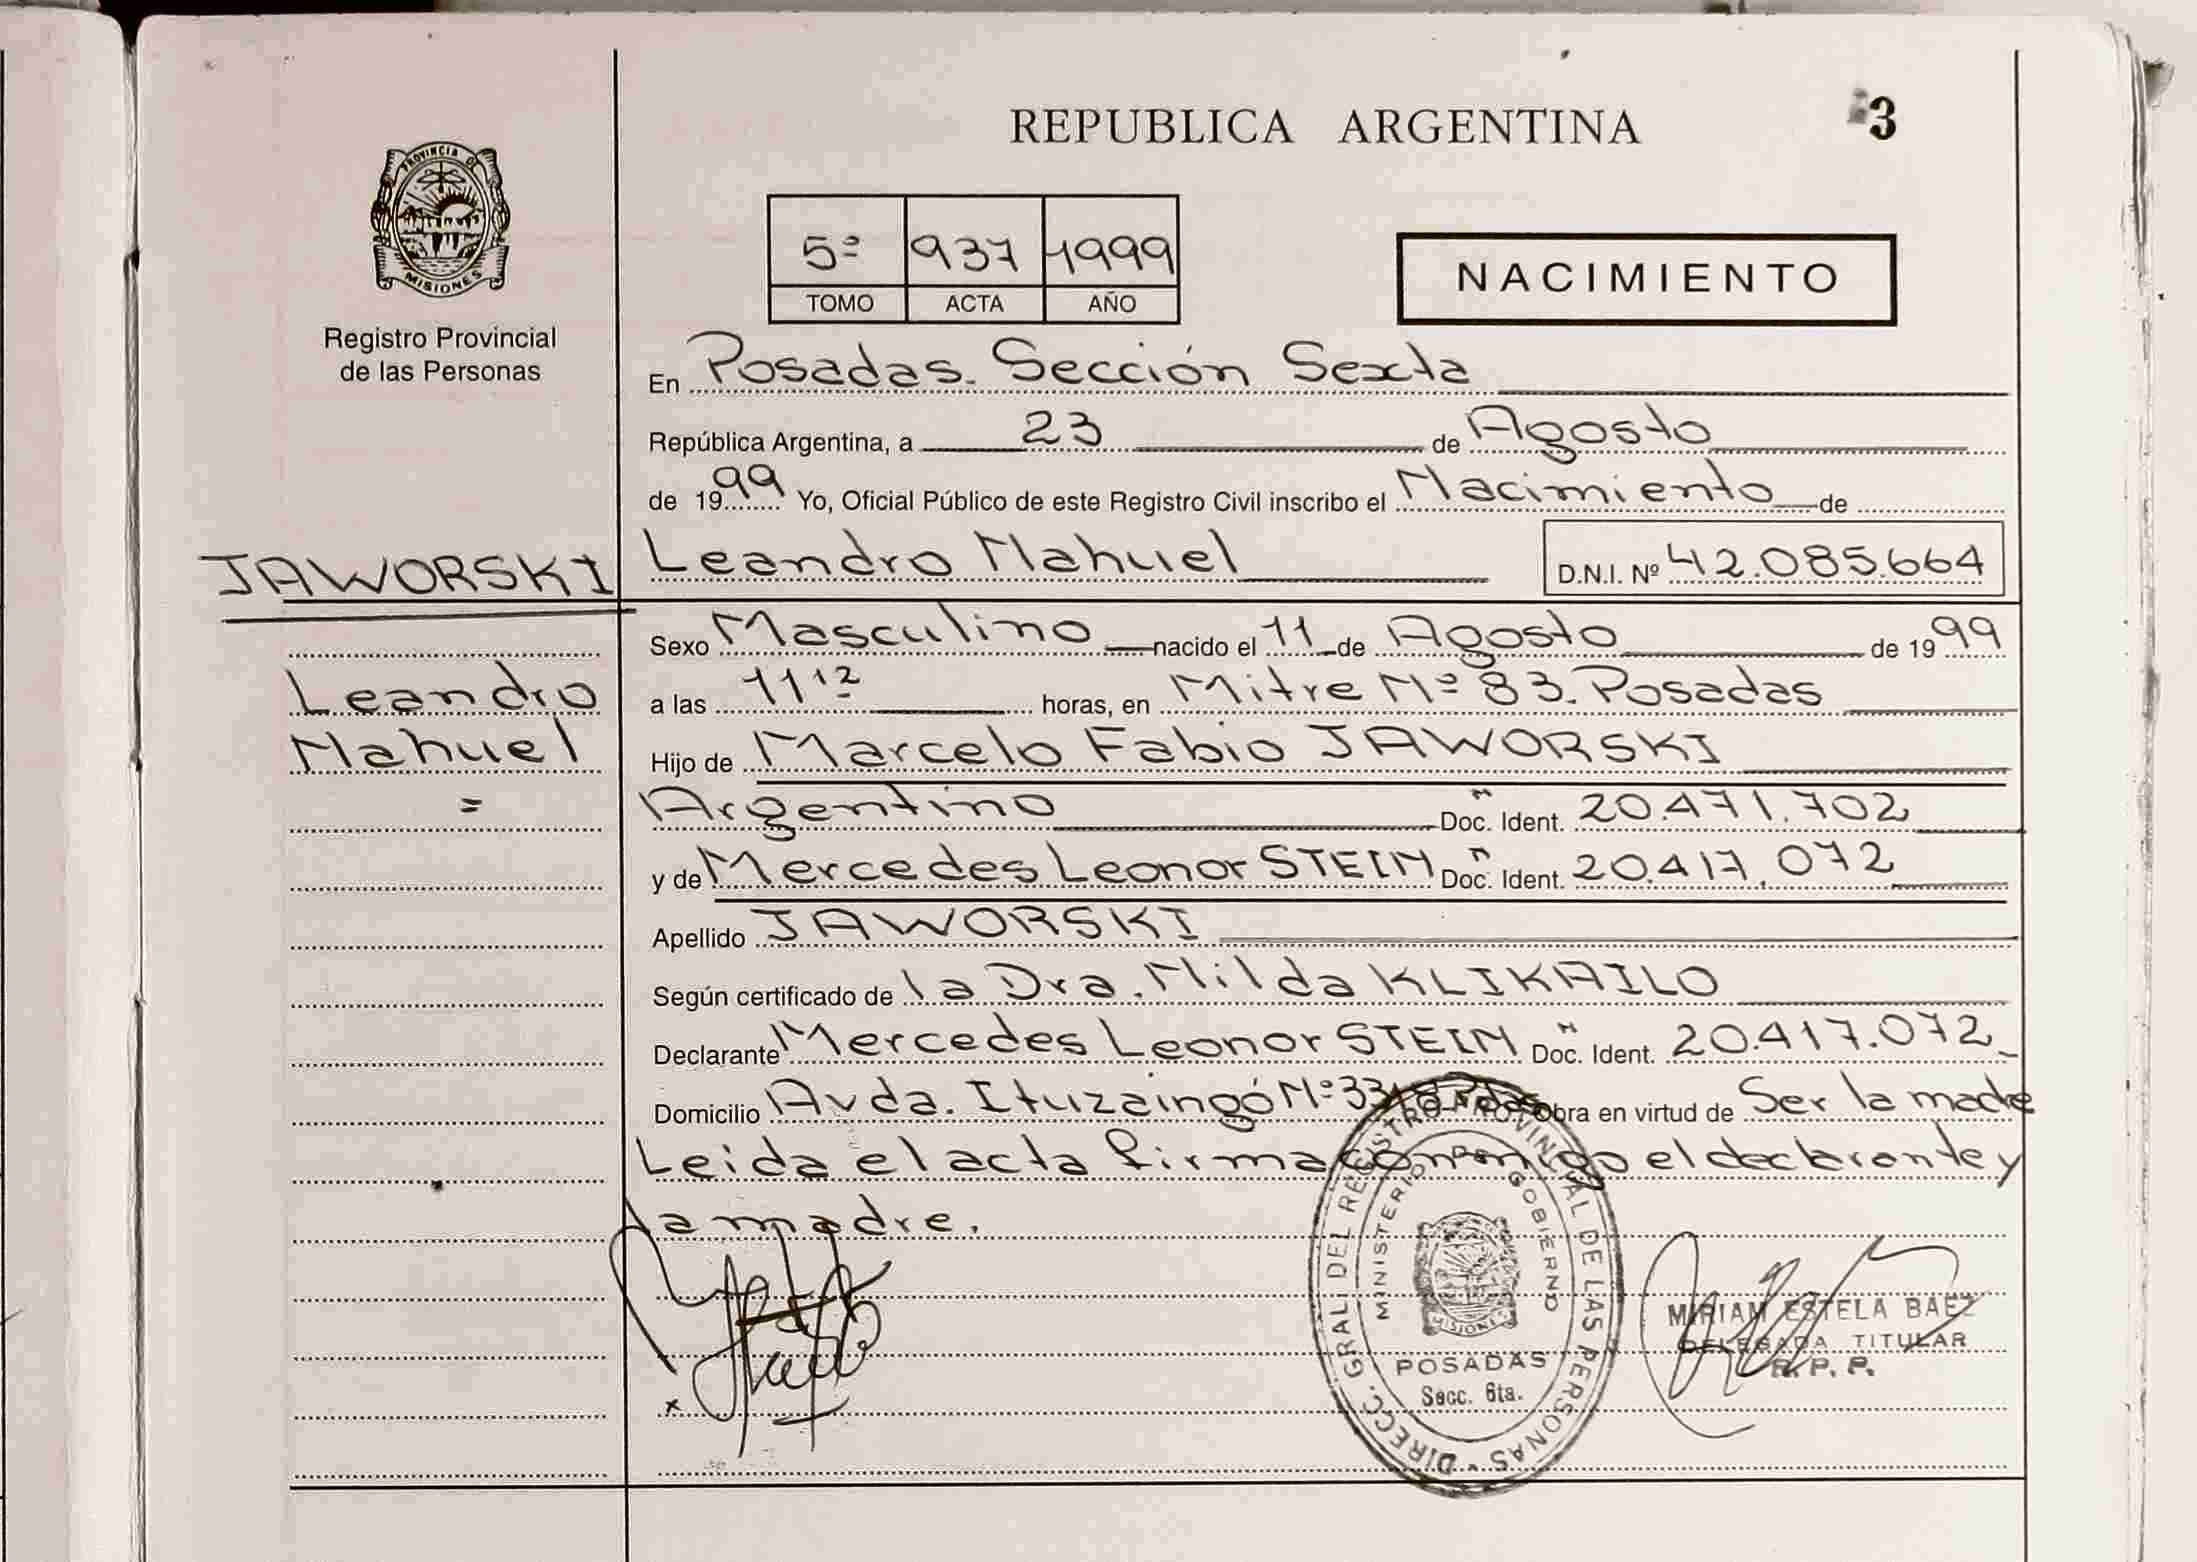 REPUBLICA ARGENTINA
3
PROVINCIA DE
MISIONES
Registro Provincial
de las Personas
5º 937 1999
TOMO ACTA AÑO
NACIMIENTO
En Posadas. Sección Sexta
República Argentina, a 23 de Agosto
de 1999 Yo, Oficial Público de este Registro Civil inscribo el Nacimiento de
JAWORSKI Leandro Nahuel D.N.I. Nº 42.085.664
Sexo Masculino nacido el 11 de Agosto de 1999
Leandro
a las 11¹² horas, en Mitre Nº 83. Posadas
Nahuel
Hijo de Marcelo Fabio JAWORSKI
=
Argentino Doc. Ident. 20.471.702
y de Mercedes Leonor STEIN Doc. Ident. 20.417.072
Apellido JAWORSKI
Según certificado de la Dra. Nilda KLIKAILO
Declarante Mercedes Leonor STEIN Doc. Ident. 20.417.072
Domicilio Avda. Ituzaingó Nº Obra en virtud de Ser la madre
Leida el acta firma conmigo el declarante y
la madre.
DIRECC. GRAL. DEL REGISTRO PROVINCIAL DE LAS PERSONAS
MINISTERIO DE GOBIERNO
MISIONES
POSADAS
Secc. 6ta.
MIRIAM ESTELA BAEZ
DELEGADA TITULAR
R. P. P.